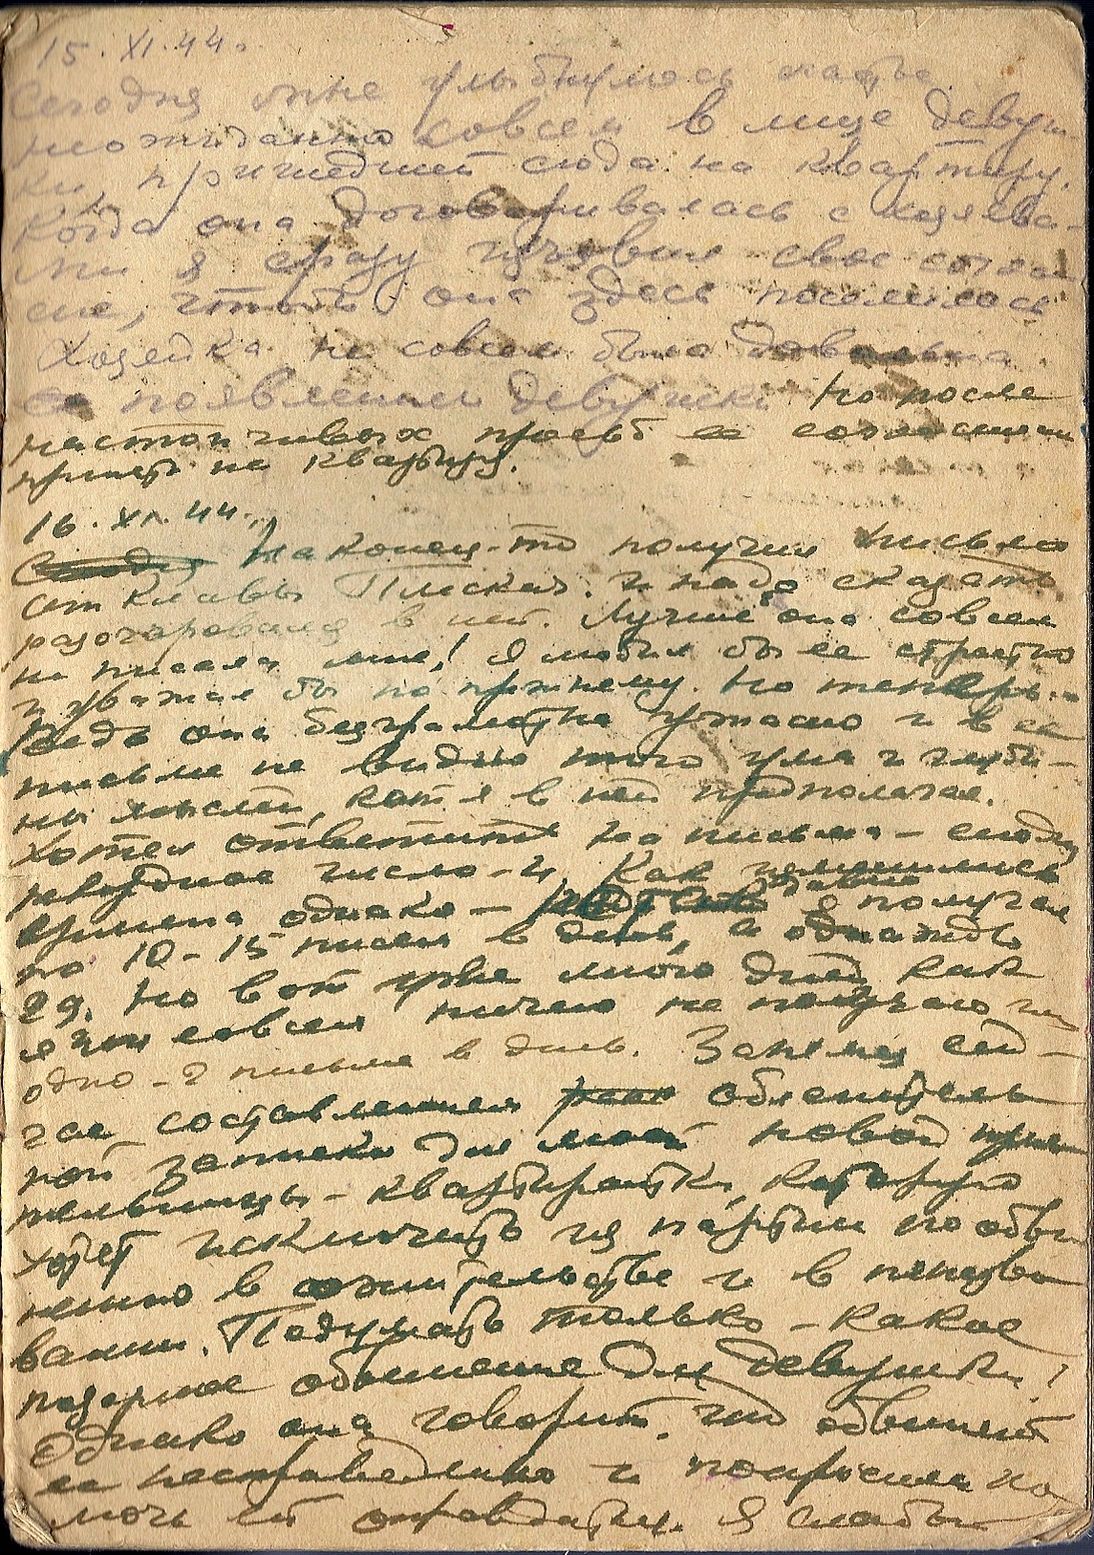 15.XI.44г.
Сегодня мне улыбнулось счастье
неожиданно совсем в лице девуш-
ки, пришедшей сюда на квартиру.
Когда она договаривалась с хозяева-
ми я сразу изъявил свое согла
сие, чтобы она здесь поселилась
Хозяйка не совсем была довольна
появлением девушки. Но после
настойчивых просьб ее согласилась
принять на квартиру.
16.XI.44г.
Сегодня Наконец-то получил письмо
от Клавы Плискач. И надо сказать
разочаровался в ней. Лучше б она совсем
не писала мне! Я любил бы ее страстно
и уважал бы по прежнему. Но теперь..
Ведь она безграмотна ужасно и в ее
письме не видно того ума и глуби-
ны мыслей, кот. я в ней предполагал.
Хотел ответить на письма - сегодня
число - 4. Как изменились
времена однако - давно я получал
по 10-15 писем в день, а однажды
29. Но вот уже много дней как
я или совсем ничего не получаю или
одно-2 письма в день. Занялся сей-
час составлением объяснитель
ной записки для моей новой
-квартирантки, которую
хотят исключить из партии по обви
нению в сожительстве и в
вании. Подумать только - какое
позорное обвинение для девушки!
Однако она говорит, что обвиняют
ее несправедливо и попросила по-
мочь ей оправдаться. Я